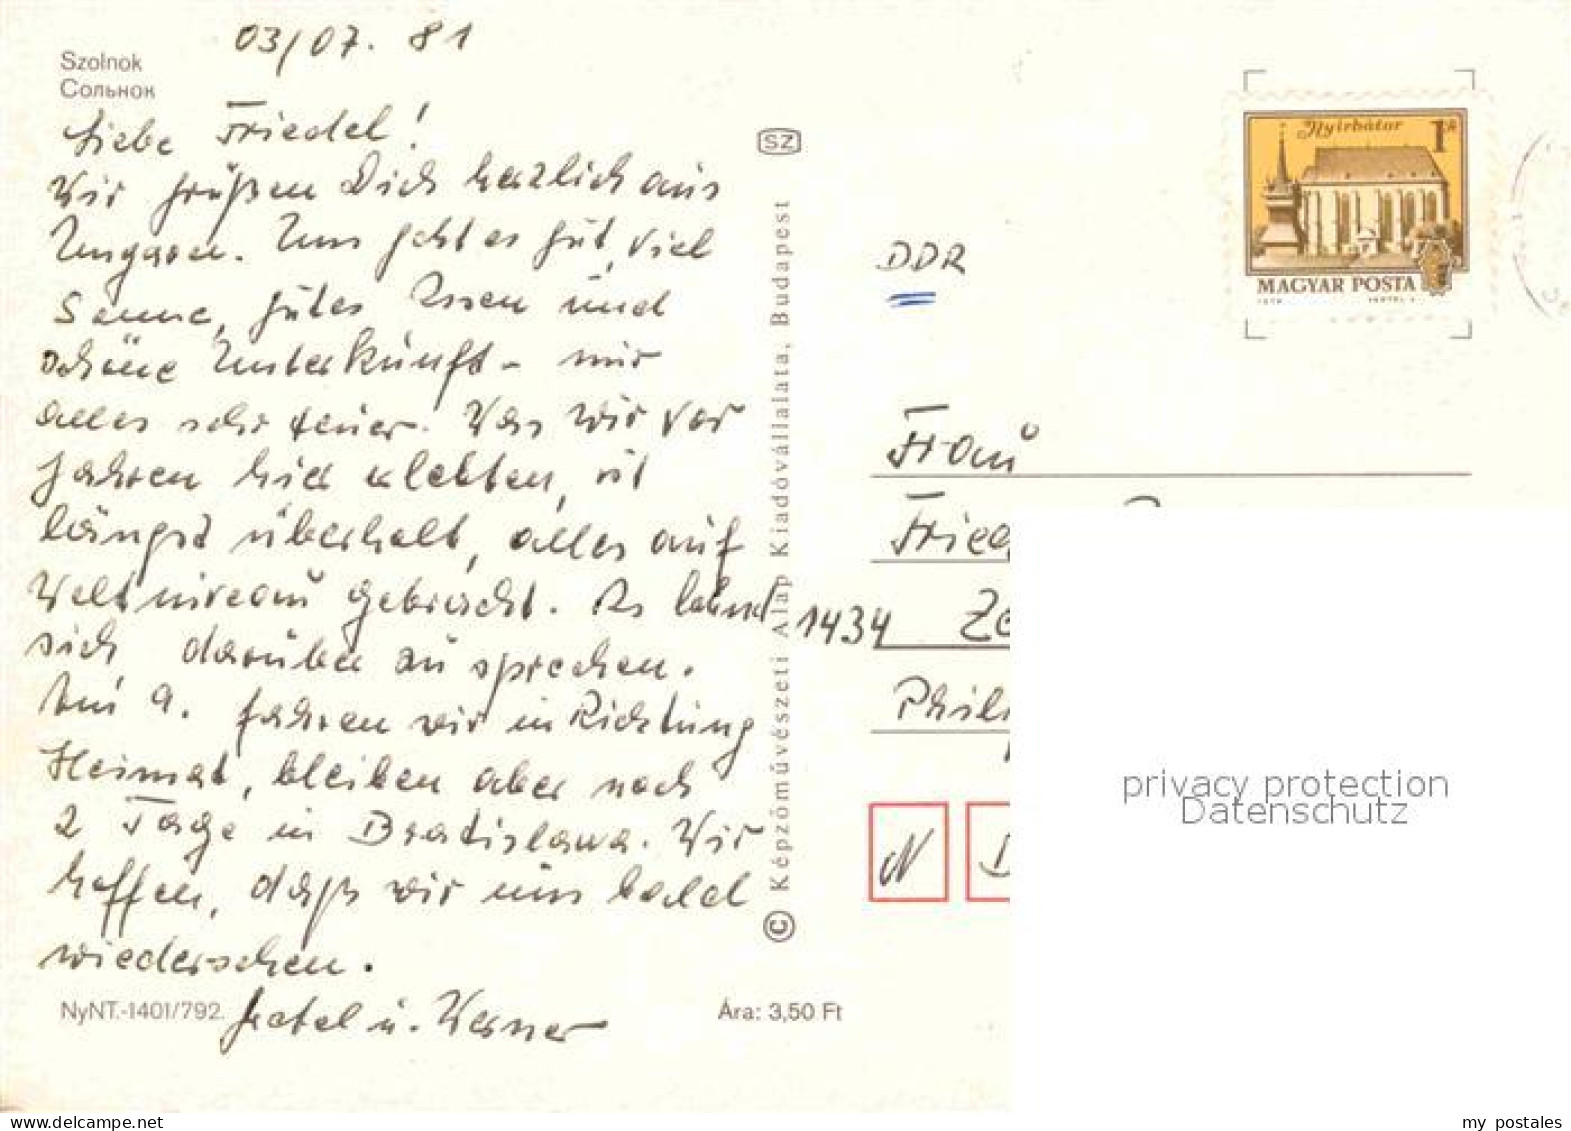 03/07. 81
Szolnok
Сольнок
Liebe Friedel!
Wir grüßen Dich herzlich aus
Ungarn. Uns geht es gut, viel
Sonne, gutes Essen und
schöne Unterkunft - nur
alles sehr teuer. Was wir vor
Jahren hier erlebten, ist
längst überholt, alles auf
Weltniveau gebracht. Es lohnt
sich darüber zu sprechen.
Am 9. fahren wir in Richtung
Heimat, bleiben aber noch
2 Tage in Bratislawa. Wir
hoffen, daß wir uns bald
wiedersehen.
u. Werner
NyNT.-1401/792.
Ára: 3,50 Ft
SZ
© Képzőművészeti Alap Kiadóvállalata, Budapest
Nyírbátor
1 Ft
MAGYAR POSTA
DDR
Frau
Fried
1434 Ze
Phili
N D
privacy protection
Datenschutz
www.delcampe.net
my_postales